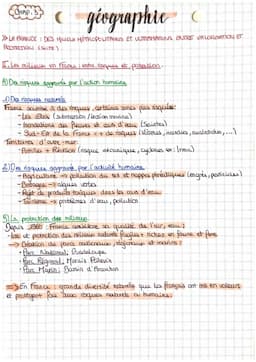 Chap. 5
géographie
LA FRANCE : DES MILIEUX MÉTROPOLITAINS ET ULTRAMARINS ENTRE VALORISATION ET
PROTECTION (SUITE)
II. Les milieux en France : entre risques et protection.
A) Des risques aggravés par l'action humaine
1) Des risques naturels
France soumise à des risques, certaines zones plus risquées :
- Les côtes (submersion / érosion marine)
- Inondations des fleuves et cours d'eau (Seine)
- Sud-Est de la France = + de risques (séismes, incendies, avalanches, ...)
Territoires d'outre-mer :
- Antilles + Réunion (risque volcanique, cyclones etc.)
2) Des risques aggravés par l'activité humaine
- Agriculture → pollution du sol et nappes phréatiques (engrais, pesticides)
- Bretagne → algues vertes
- Rejet de produits toxiques dans les cours d'eau
- Tourisme → problèmes d'eau, pollution
3) La protection des milieux
Depuis 1960 : France améliore sa qualité de l'air, eau ;
- Loi et protection des milieux naturels fragiles + riches en faune et flore
→ Création de parcs nationaux, régionaux et marins :
- Parc National : Guadeloupe
- Parc Régional : Marais Poitevin
- Parc Marin : Bassin d'Arcachon
⇒ En France : grande diversité naturelle que les français ont mis en valeurs
et protègent face aux risques naturels ou humains.